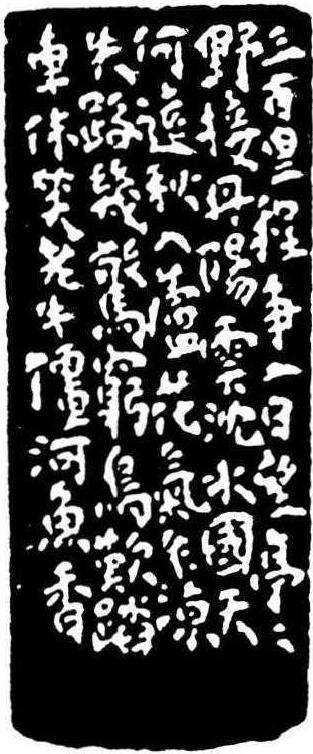 三百里程争一日望亭〻
野接丹陽雲沈水國天
何遠秋入蘆花氣乍涼
失路幾驚窮鳥歎踏
車休笑老牛僵河魚香